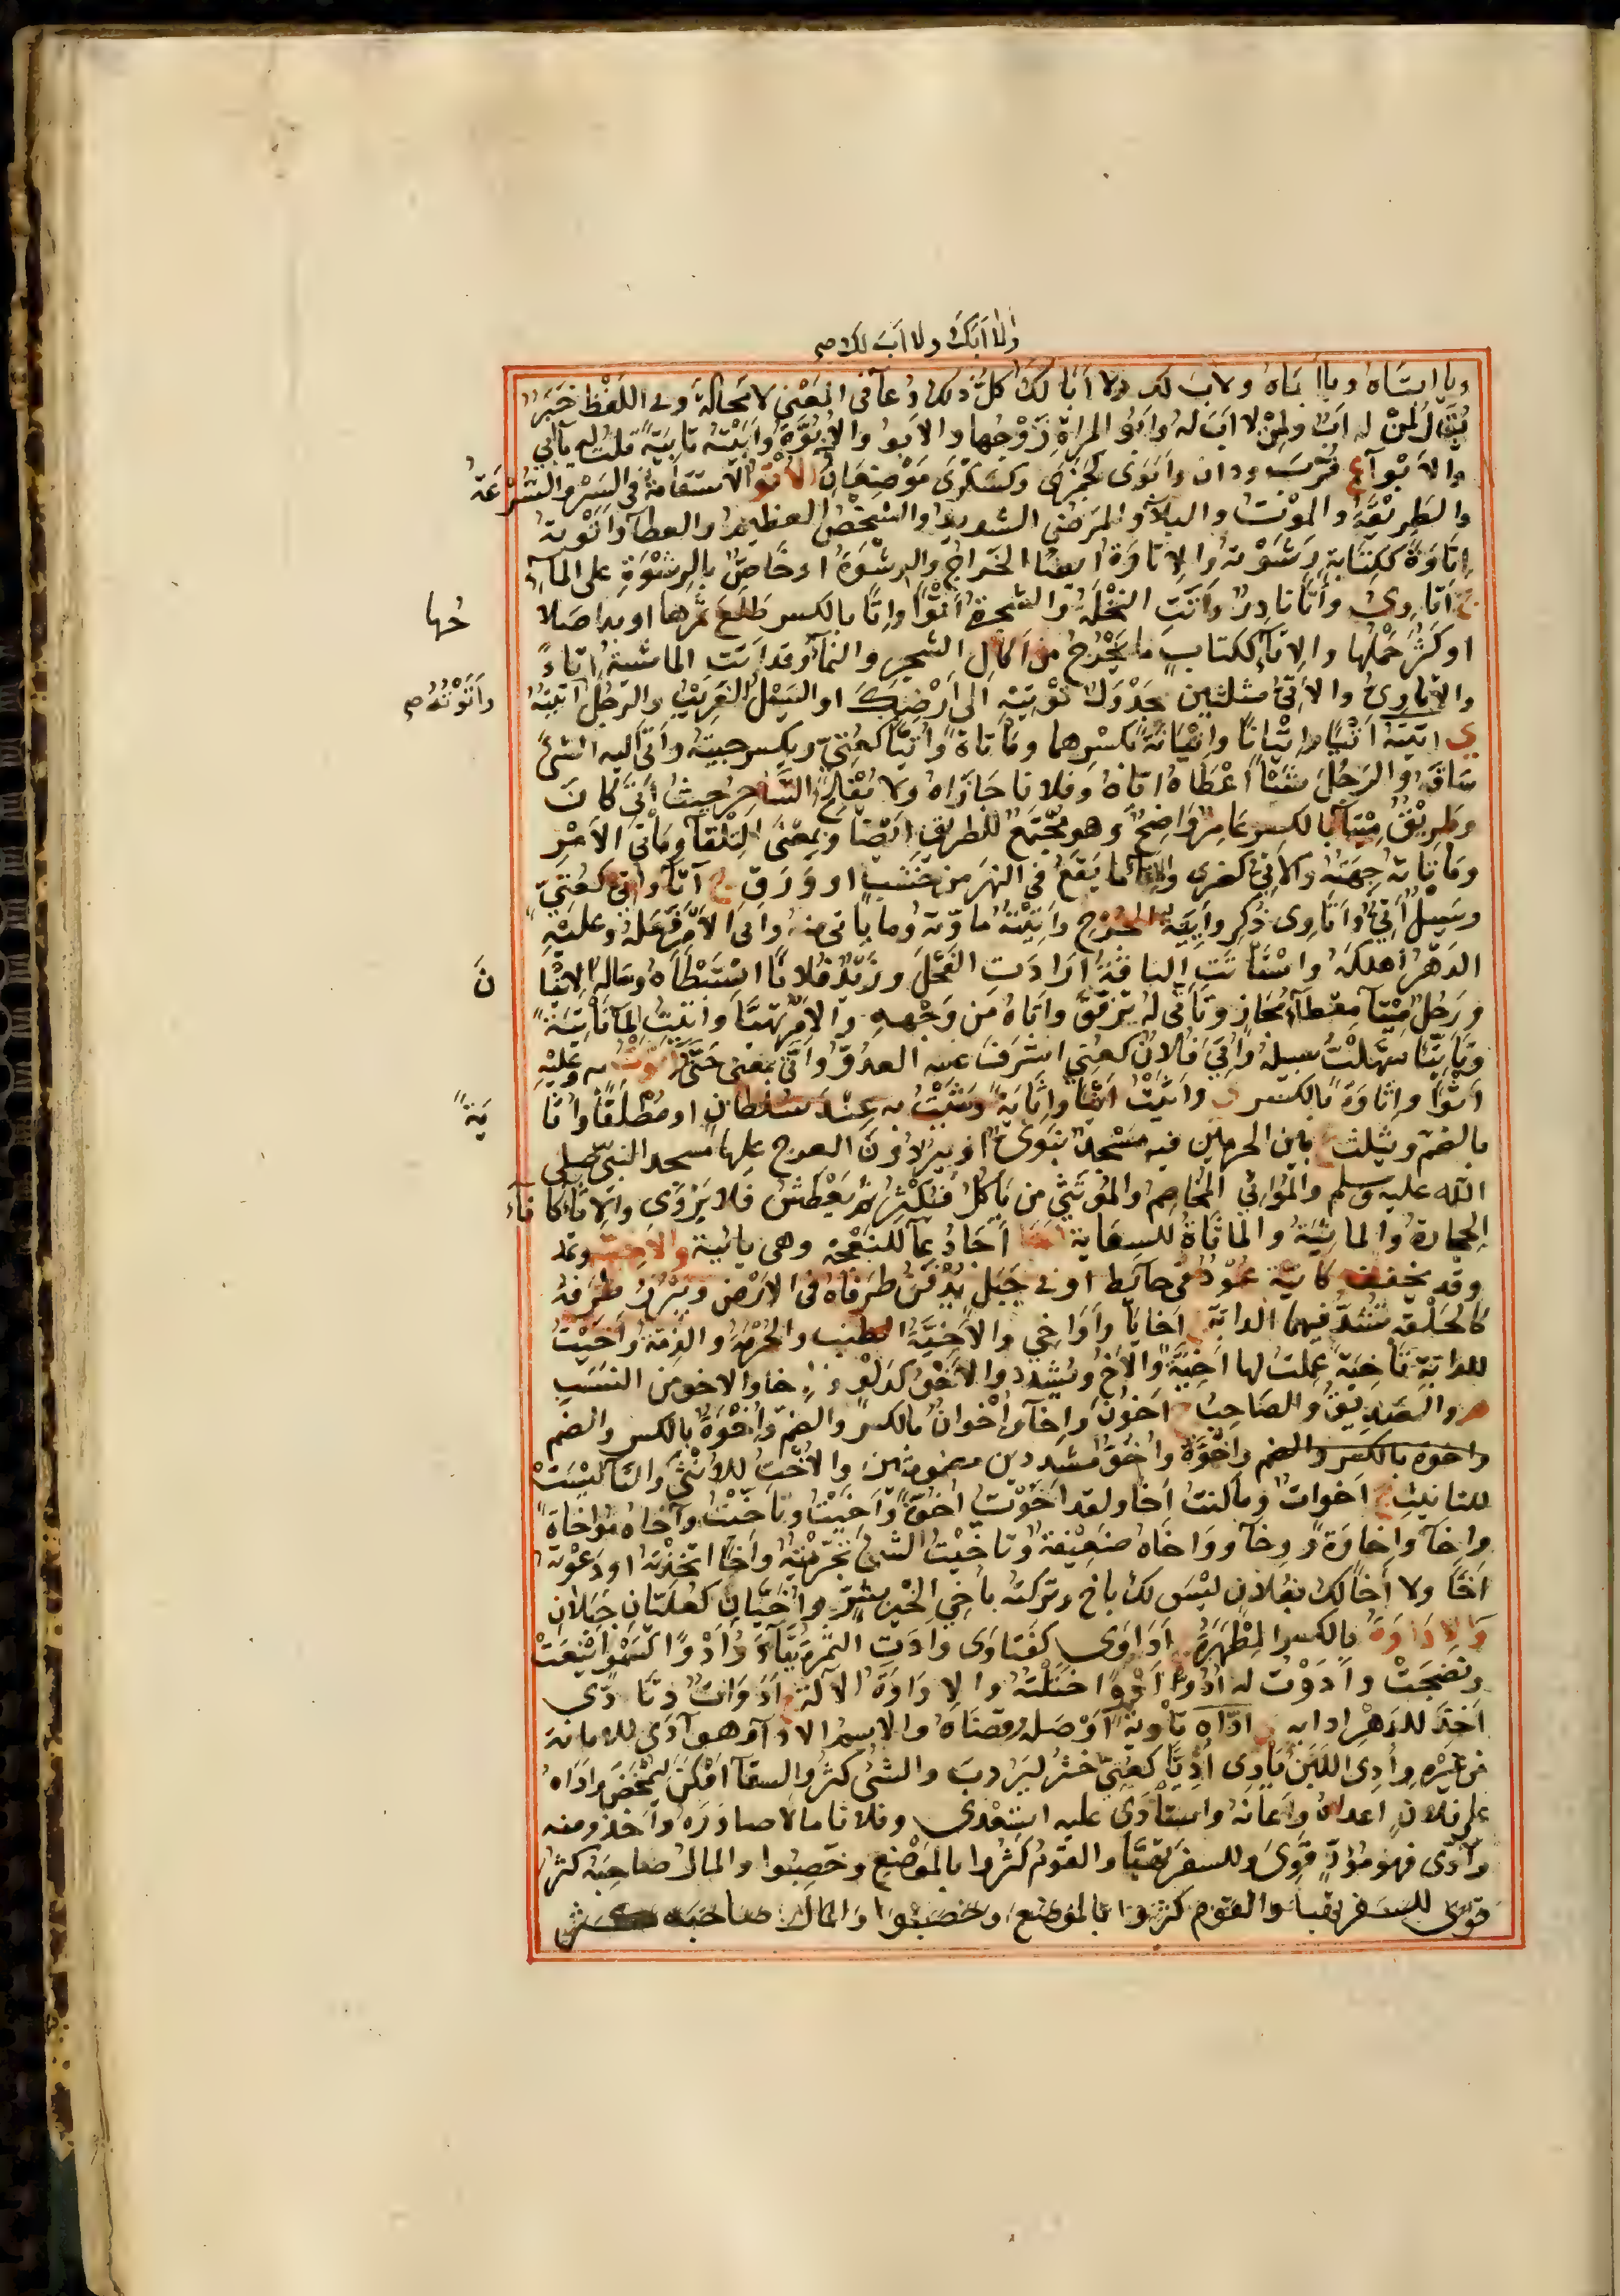 ولا أبَكَ ولا ابَ لكَ صح
ويا ابتَاهُ ويا أباهْ ولابَ لك ولا أبا لَكَ كلُّ ذلك دُعآ في المَعْني لا مَحَالَةَ وفي اللفْظ خَبَرٌ
يُقَالُ لمنْ له ابٌ ولمنْ لا ابَ لهُ وابو المراةِ زَوْجُها والابو والابُوَّةُ وابَّيْتُه تابِيَةً قلتُ له بابي
والابْوآ ع قُربَ ودان وابَوَى كجَمَزَى وكسَكْرَى مَوْضِعَانِ الاتْوُ الاستقامةُ في السَّيْرِ والسُّرْعَةُ
والطرِيقَةُ والموْتُ والبلآ والمرَضُ الشديدُ والشخْصُ العظيمُ والعطآ واتَوْتهُ
اِتَاوَةً ككِتَابةٍ رَشَوْتهُ والاِتاوَةُ ايضًا الخَراجُ والرِشْوَةُ اوخَاصٌّ بالرشْوَةِ على المآ
ج اَتاوِىٌ وأتًا نادِرٌ واتَتِ النخْلَةُ والشجرةُ اَتْوًا واِتًا بالكسر طَلَعَ ثمرُها او بدا صَلا
حُها
او كَثُرَ حَمْلُها والاِتآ ككتابٍ ما يَخْرُجُ من اُكالِ الشجرِ والنمآ وقد اتت الماشيةُ اِتاءً
والاَتاوِىُّ والاتِىُّ مثلثين جدْوَلٌ تؤتِيْهِ الى ارْضِكَ او السَيْلُ الغَرِيْبُ والرجُلُ اَتَيْتُهُ
واَتَوْتُهُ صح
ي اتَيْتهُ اَتْيًا واِتْيانًا واِتْيانَةً بكسْرِهما ومَأتاةً واُتِيًّا كعُتِيٍّ ويكسر جِيتهُ واَتى اليه الشئَ
سَاقَه والرَجُلَ شَيْأً اَعْطاهُ ايّاهُ وفلانا جازاهُ ولا يُفْلِحُ السَّاحِرُ حيثُ اَتى كانَ
وطرِيْقٌ مِيْتآ بالكسر عامِرٌ واضِحٌ وهو مجْتمَعُ الطريقِ ايْضًا وبمعْنَى التِلْقآ ومَأتى الاَمْرِ
ومَاتاتهُ جِهَتُهُ والاَتِىُّ كغَنِى والاتآ ما يَقَعُ في النهْرِ من خَشَبٍ او وَرَقٍ ج آتآ واُتِىٌّ كعُتِىٍّ
وسَيْلٌ اَتِىٌّ واَتاوِى ذُكِر واَتِيَّةُ الجُرْحِ واِتيتهُ مادّتهُ وما ياتى منهُ واتى الاَمْرَ فعَلهُ وعليهِ
الدَهْرُ اَهلكَهُ واسْتَاتتِ الناقةُ ارَادَتِ الفَحْلَ وزَيْدٌ فلانًا اسْتَبْطَاهُ وسَالهُ الاِتْيا
نَ
ورَجُلٌ مِيْتآ مِعْطآ مُجازٍ وتَاَتَّى لهُ ترَفَّقَ واَتاهُ من وَجْههِ والاَمرُ تَهَيَّا واتَّيْتُ المآ تَأتِيَةً
وتأتِيًّا سَهَّلْتُ سبيلهُ واُتِيَ فلانٌ كعُنِي اشرَفَ عليه العدُوُّ واَتَّى بمعنى حَتَّى اَثَوْتُ به وعَليْهِ
اَثْوًا واِثاوَةً بالكسر ي واَثَيْتُ اَثْيًا واِثايَةً وَشَيْتُ به عِنْدَ سُلطانٍ او مُطْلَقًا واُثا
يَةٌ
بالضم ويثلث ع بين الحرمين فيه مسْجدٌ نَبَوىٌّ او بِيرٌ دُوْنَ العرج عليها مسجد النبيّ صلى
الله عليه وسلم والمُواثِي المُخاصِمُ والمُوتَثِي من يَاكُلُ فيكْثِرُ ثم يَعْطَشُ فلا يَرْوَى والاِثَآءُ
الحجارةُ والماثِيَةُ والماثاةُ السِعَايةُ احا اَخا دُعآ للنعْجَةِ وهي يائيةٌ والآخِيَةُ وتمد
وقد يخفف كآنيةٍ عُوْدٌ في حائِطٍ او في حَبْلٍ يُدْفَنُ طرَفاهُ في الاَرْضِ ويَبْرُزُ طرَفهُ
كالحَلْقةِ تُشدُّ فيها الدابةُ ج اَخايا واَوَاخِي والاَخِيَّةُ الطنب والحُرْمَةُ والذِمَّةُ واَخَّيْتُ
للدابَّةِ تأخِيَةً عمِلتُ لها اَخِيَّةً والاَخُ ويُشَدد والاَخْوُ كدَلْوٍ والاخو من النَسَبِ
م والصَدِيقُ والصَاحِبُ ج اَخوُنَ واِخآ واِخْوانٌ بالكسر والضم واِخْوَةٌ بالكسر والضم
واخوة بالكسر والضم واُخُوَّةٌ واُخُوٌّ مشددين مضمومتين والاُخْتُ للاُنثَى والتآ ليْسَتْ
للتانيثِ ج اَخواتٌ وما كنتُ اَخا ولقد اَخَوْتُ اُخُوَّةً واَخَيْتُ وتاَخَّيْتُ وآخاهُ مُؤَاخاةً
واِخآ واِخاوَةً ووِخآ ووَاخاه ضَعِيْفةٌ وتأخيْتُ الشئَ تحَرَّيْتهُ واَخًا اتخذتهُ اودَعَوْتهُ
اَخًا ولا اَخا لك بفُلانٍ ليْسَ لك باَخٍ وتركتهُ باَخِي الخَيْر بشَرٍّ واُخَيَّانِ كعُلَيَّانِ جَبَلانِ
والاِدَاوَةُ بالكسر المِطْهَرَةُ ج اَدَاوَى كفَتاوَى واَدَتِ الثمرَةُ اُدُوًّا كسُمُوٍّ اَيْنَعَتْ
ونضِجَتْ واَدَوْتُ له اَدْوُ اَدْوًا خَتَلْتُهُ والاِدَاوَةُ الآلةُ ج اَدَوَاتٌ وتآدَى
اَخذَ للدَهْرِ اداته ي اَدَّاه تأدِيةً اَوْصَلهُ وقضَاهُ والاسمُ الادآ وهو آدَى للامانةِ
من غيْرِه واَدِىَ اللبَنُ يأدِى اُدِيًّا كعُتِىٍّ خثُرَ ليَرُوبَ والشئُ كثُرَ والسقآ اَمْكنَ ليُمْخَضَ وآداهُ
على فلانٍ اعداهُ واَعانهُ واستَأدَى عليه استَعْدى وفلانا مالا صادَرَهُ واَخذ ومنه
وآدَى فهو مُؤْدٍ قوِىَ وللسفر تهَيَّا والقَوْمُ كثُرُوا بالمَوْضِع وخَصِبُوا والمالُ صاحبَهُ كثرُ
قوى للسفر تهيا والقوم كثروا بالموضع وخصبوا والمال صاحبه